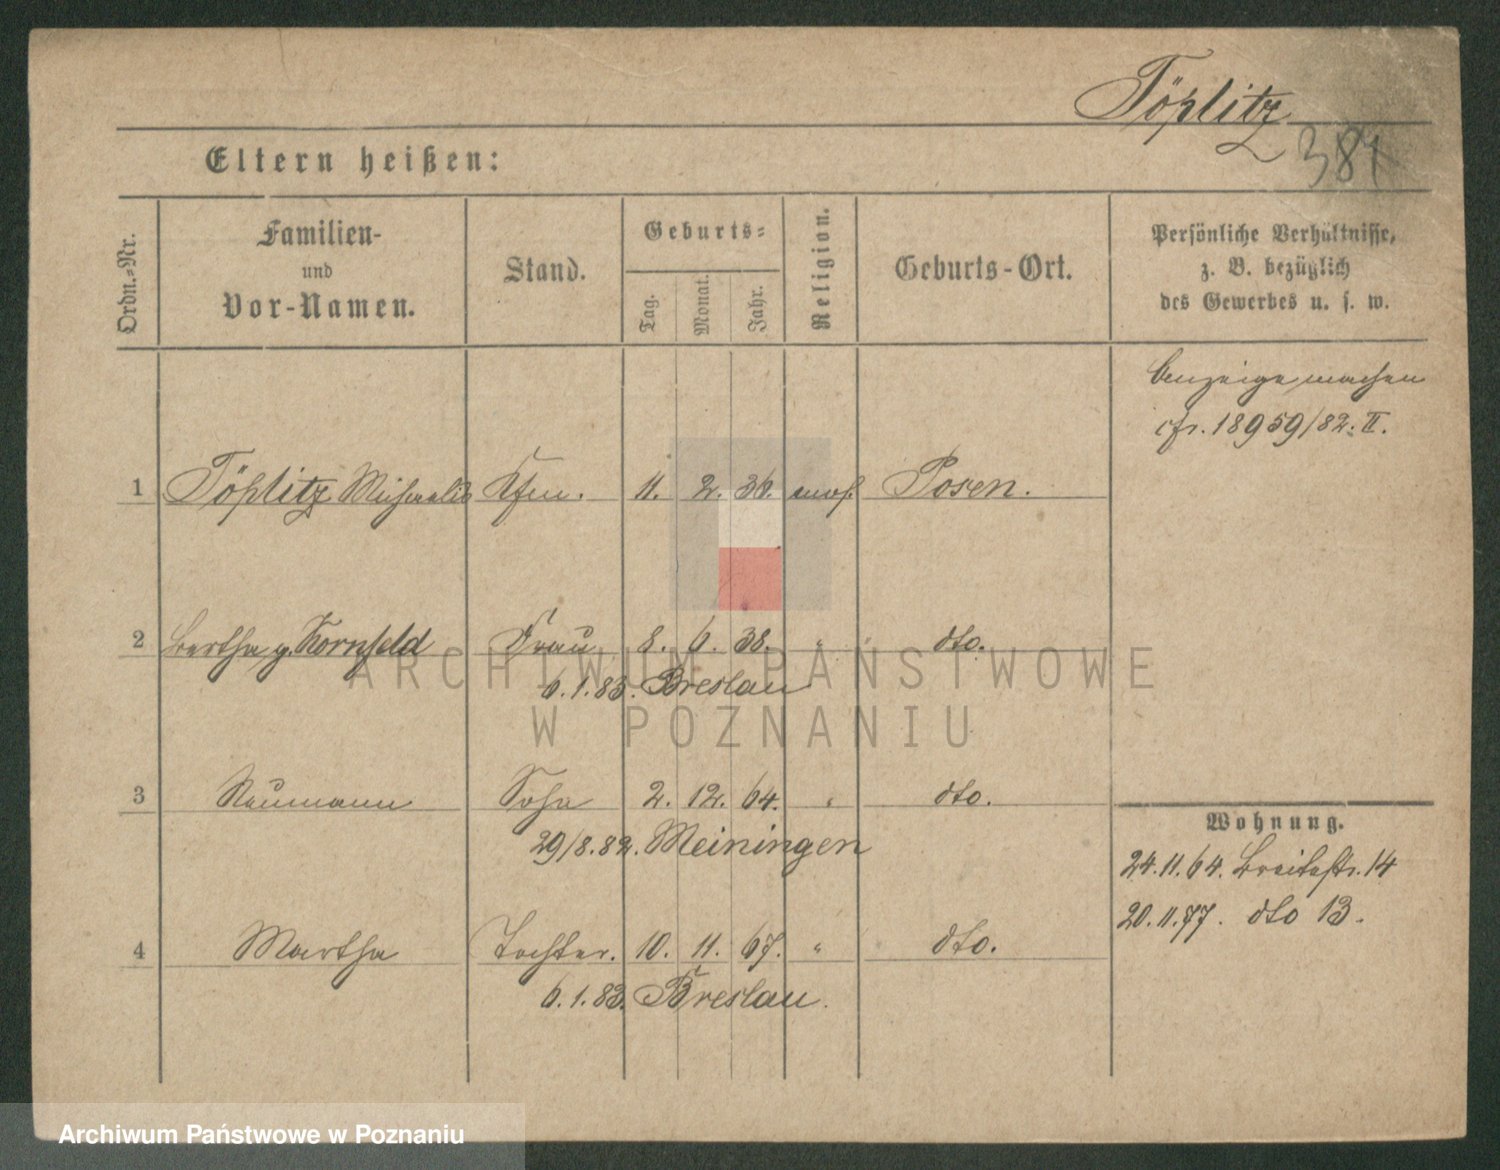 Töplitz
381
Eltern heißen:
Ordn.-Nr.
Familien- und Vor-Namen.
Stand.
Geburts-
Tag.
Monat.
Jahr.
Religion.
Geburts-Ort.
Persönliche Verhältnisse,
z. B. bezüglich
des Gewerbes u. s. w.
Anzeige machen
cfr. 18959/82. II.
1 Töplitz Michaelis Kfm. 11. 2. 36. mos. Posen.
2 Bertha g. Kornfeld Frau 8. 6. 38. " dto.
6.1.83. Breslau
3 Neumann Sohn 2. 12. 64. " dto.
29/8.82. Meiningen
4 Martha Tochter. 10. 11. 67. " dto.
6.1.83. Breslau.
Wohnung.
24.11.64. Breitestr. 14
20.11.77. dto 13.
ARCHIWUM PAŃSTWOWE
W POZNANIU
Archiwum Państwowe w Poznaniu